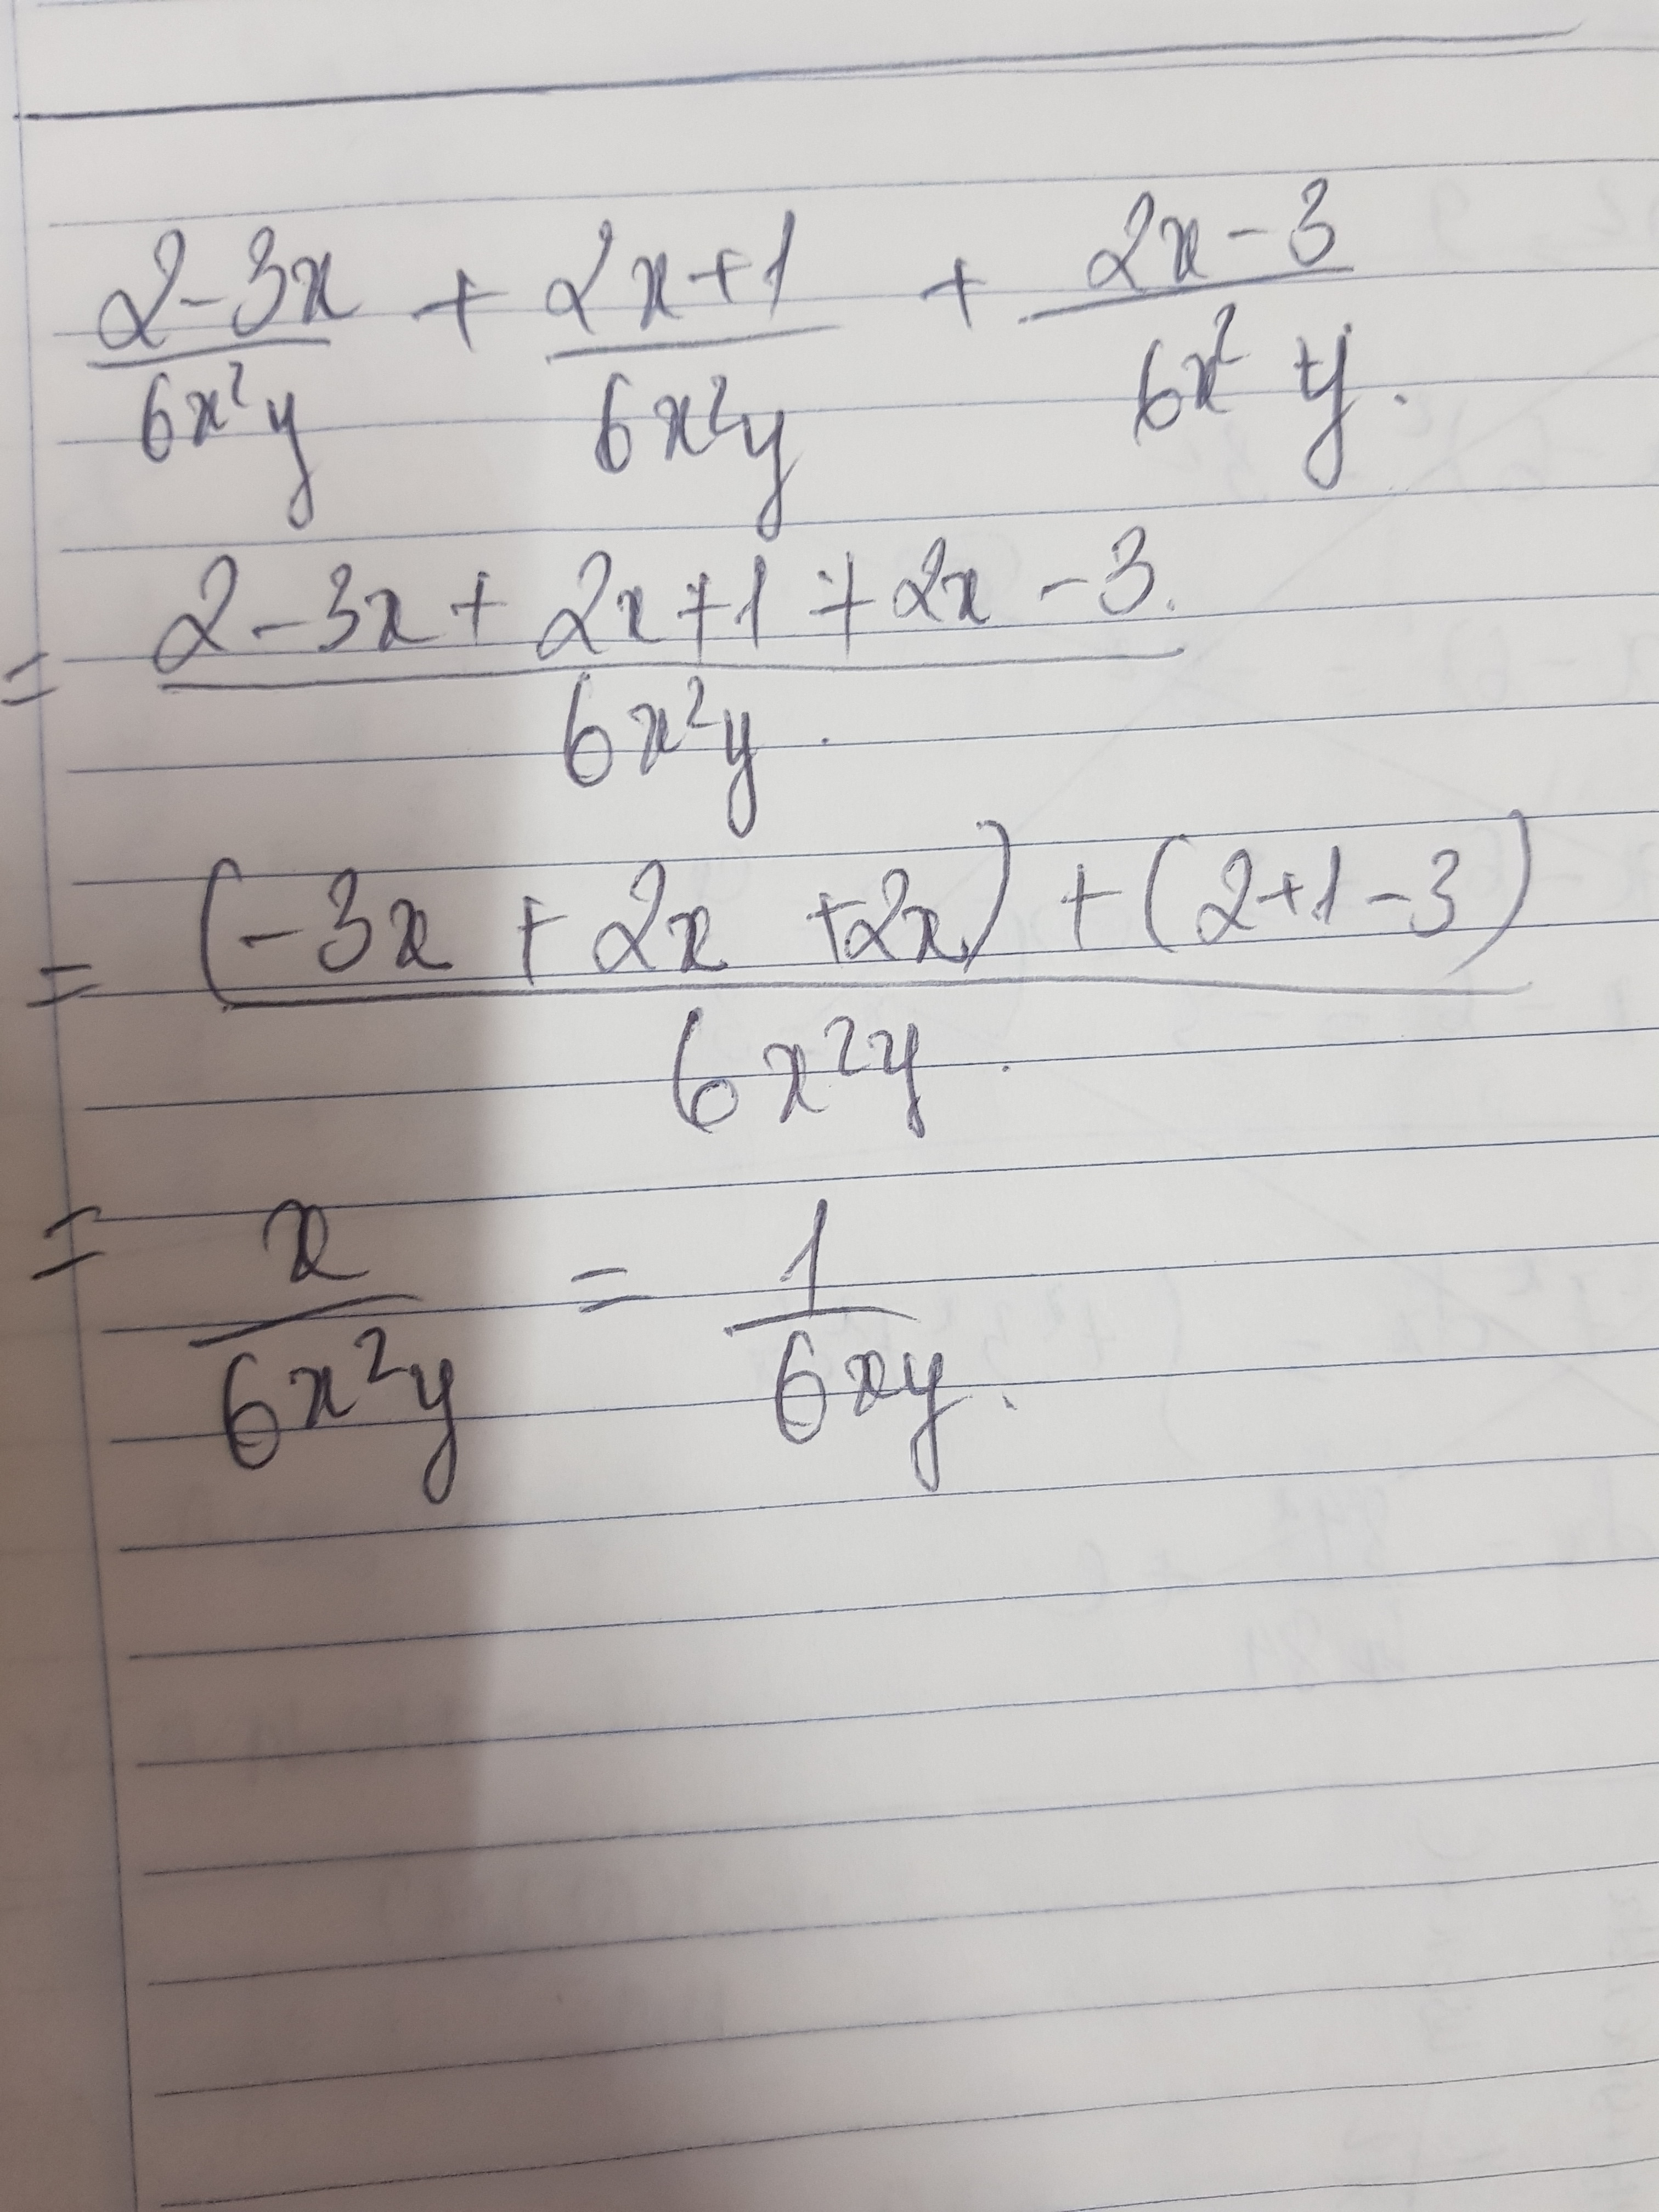 (2-3x)/(6x²y) + (2x+1)/(6x²y) + (2x-3)/(6x² y).
= (2-3x+2x+1+2x-3.)/(6x²y).
= ((-3x+2x+2x)+(2+1-3))/(6x²y).
= x/(6x²y) = 1/(6xy).